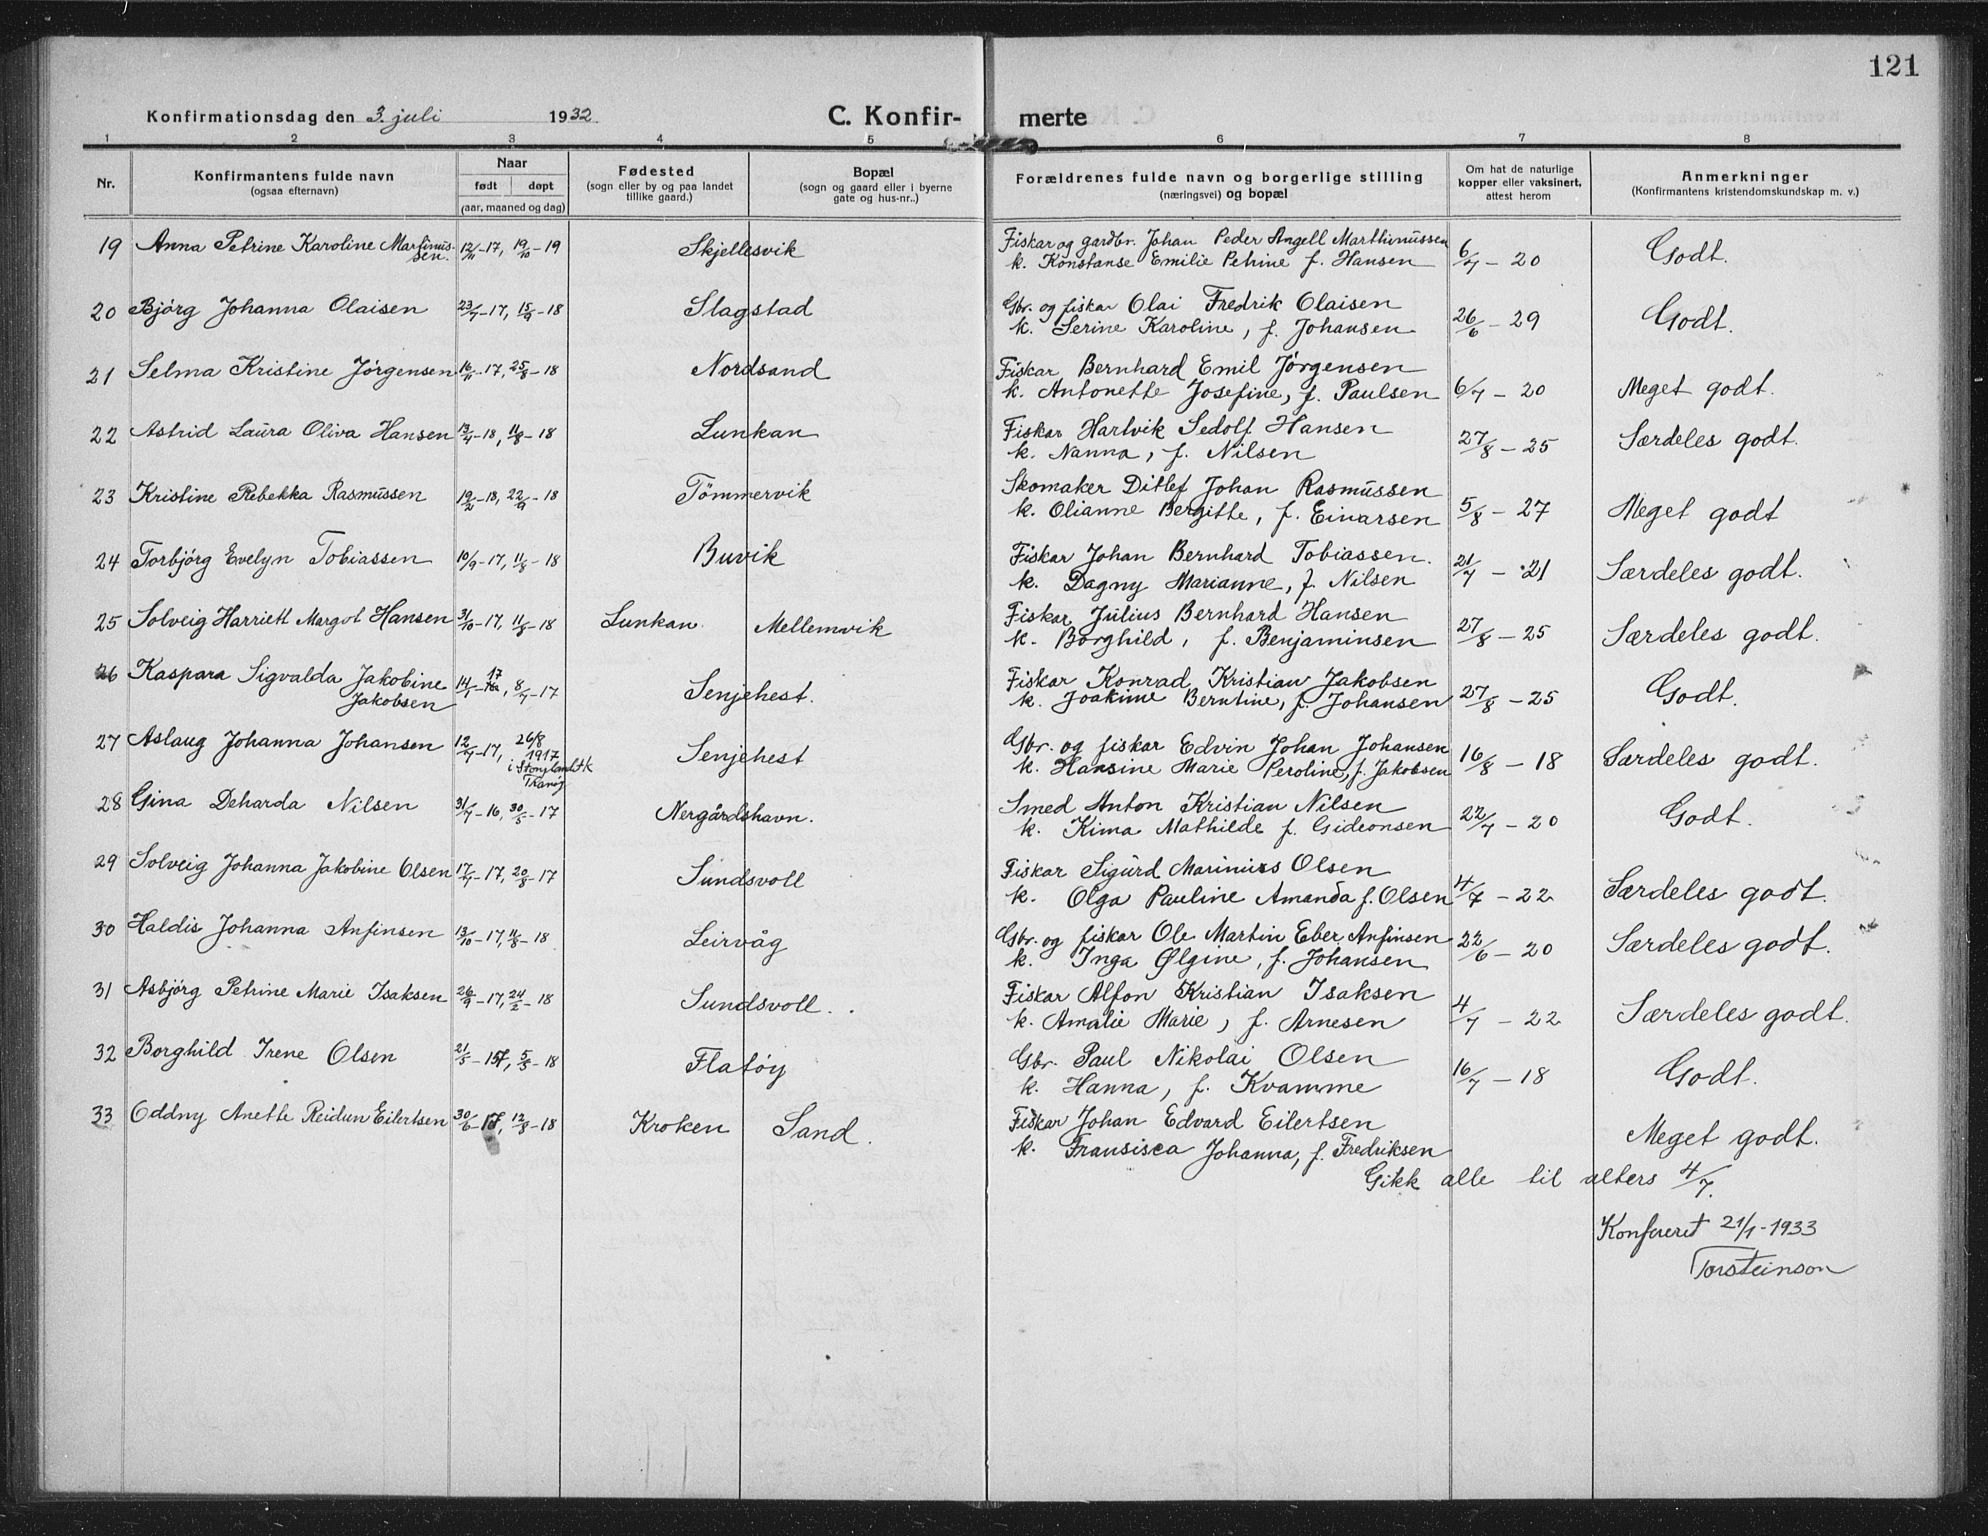 121
Konfirmationsdag den 3. juli 1932
C. Konfir- merte
1 2 3 4 5 6 7 8
Nr.
Konfirmantens fulde navn
(ogsaa efternavn)
Naar
født døpt
(aar, maaned og dag)
Fødested
(sogn eller by og paa landet
tillike gaard.)
Bopæl
(sogn og gaard eller i byerne
gate og hus-nr..)
Forældrenes fulde navn og borgerlige stilling
(næringsvei) og bopæl
Om hat de naturlige
kopper eller vaksinert,
attest herom
Anmerkninger
(Konfirmantens kristendomskundskap m. v.)
19 Anna Petrine Karoline Martinus- 12/11-17, 19/10-19 Skjellesvik Fiskar og gardbr. Johan Peder Angell Marthinussen 6/7 - 20 Godt.
sen. k. Konstanse Emilie Petrine f. Hansen
20 Bjørg Johanna Olaisen 23/7-17, 15/9-18 Slagstad Gbr. og fiskar Olai Fredrik Olaisen 26/6 - 29 Godt.
k. Serine Karoline, f. Johansen
21 Selma Kristine Jørgensen 16/11-17, 25/8-18 Nordsand Fiskar Bernhard Emil Jørgensen
k. Antonette Josefine, f. Paulsen 6/7 - 20 Meget godt.
22 Astrid Laura Oliva Hansen 13/4-18, 11/8-18 Lunkan Fiskar Hartvik Sedolf Hansen
k. Nanna, f. Nilsen 27/8 - 25 Særdeles godt.
23 Kristine Rebekka Rasmussen 19/2-18, 22/9-18 Tømmervik Skomaker Ditlef Johan Rasmussen
k. Olianne Bergitte, f. Einarsen 5/8 - 27 Meget godt
24 Torbjørg Evelyn Tobiassen 10/9-17, 11/8-18 Buvik Fiskar Johan Bernhard Tobiassen.
k. Dagny Marianne, f. Nilsen 21/7 - 21 Særdeles godt.
25 Solveig Harriett Margot Hansen 31/10-17, 11/8-18 Lunkan Mellemvik Fiskar Julius Bernhard Hansen
k. Borghild, f. Benjaminsen 27/8 - 25 Særdeles godt.
26 Kaspara Sigvalda Jakobine 17 Fiskar Konrad Kristian Jakobsen
Jakobsen 8/7-17 Senjehest. k. Joakime Berntine, f. Johansen 27/8 - 25 Godt.
27 Aslaug Johanna Johansen 12/7-17, 26/8 1917 Senjehest Gbr. og fiskar Edvin Johan Johansen
Tranøy k. Hansine Marie Peroline, f. Jakobsen 16/8 - 18 Særdeles godt.
28 Gina Deharda Nilsen 31/7-16, 30/5-17 Nergårdshavn. Smed Anton Kristian Nilsen
k. Kima Mathilde f. Gideonsen 22/7 - 20 Godt.
29 Solveig Johanna Jakobine Olsen 17/7-17, 20/8-17 Sundsvoll Fiskar Sigurd Marinius Olsen
k. Olga Pauline Amanda f. Olsen 4/7 - 22 Særdeles godt.
30 Haldis Johanna Anfinsen 13/10-17, 11/8-18 Leirvåg Gbr. og fiskar Ole Martin Eber Anfinsen
k. Inga Ølgine, f. Johansen 22/6 - 20 Særdeles godt.
31 Asbjørg Petrine Marie Isaksen 26/9-17, 24/2-18 Sundsvoll. Fiskar Alfon Kristian Isaksen
k. Amalie Marie, f. Arnesen 4/7 - 22 Særdeles godt.
32 Borghild Irene Olsen 21/5-17, 5/5-18 Flatøy Gbr. Paul Nikolai Olsen
k. Hanna, f. Kvamme 16/7 - 18 Godt.
33 Oddny Anette Reidun Eilertsen Kroken Sand. Fiskar Johan Edvard Eilertsen
k. Fransisca Johanna, f. Fredriksen Meget godt.
Gikk alle til alters 4/7.
Konfereret 21/1-1933
Torsteinson